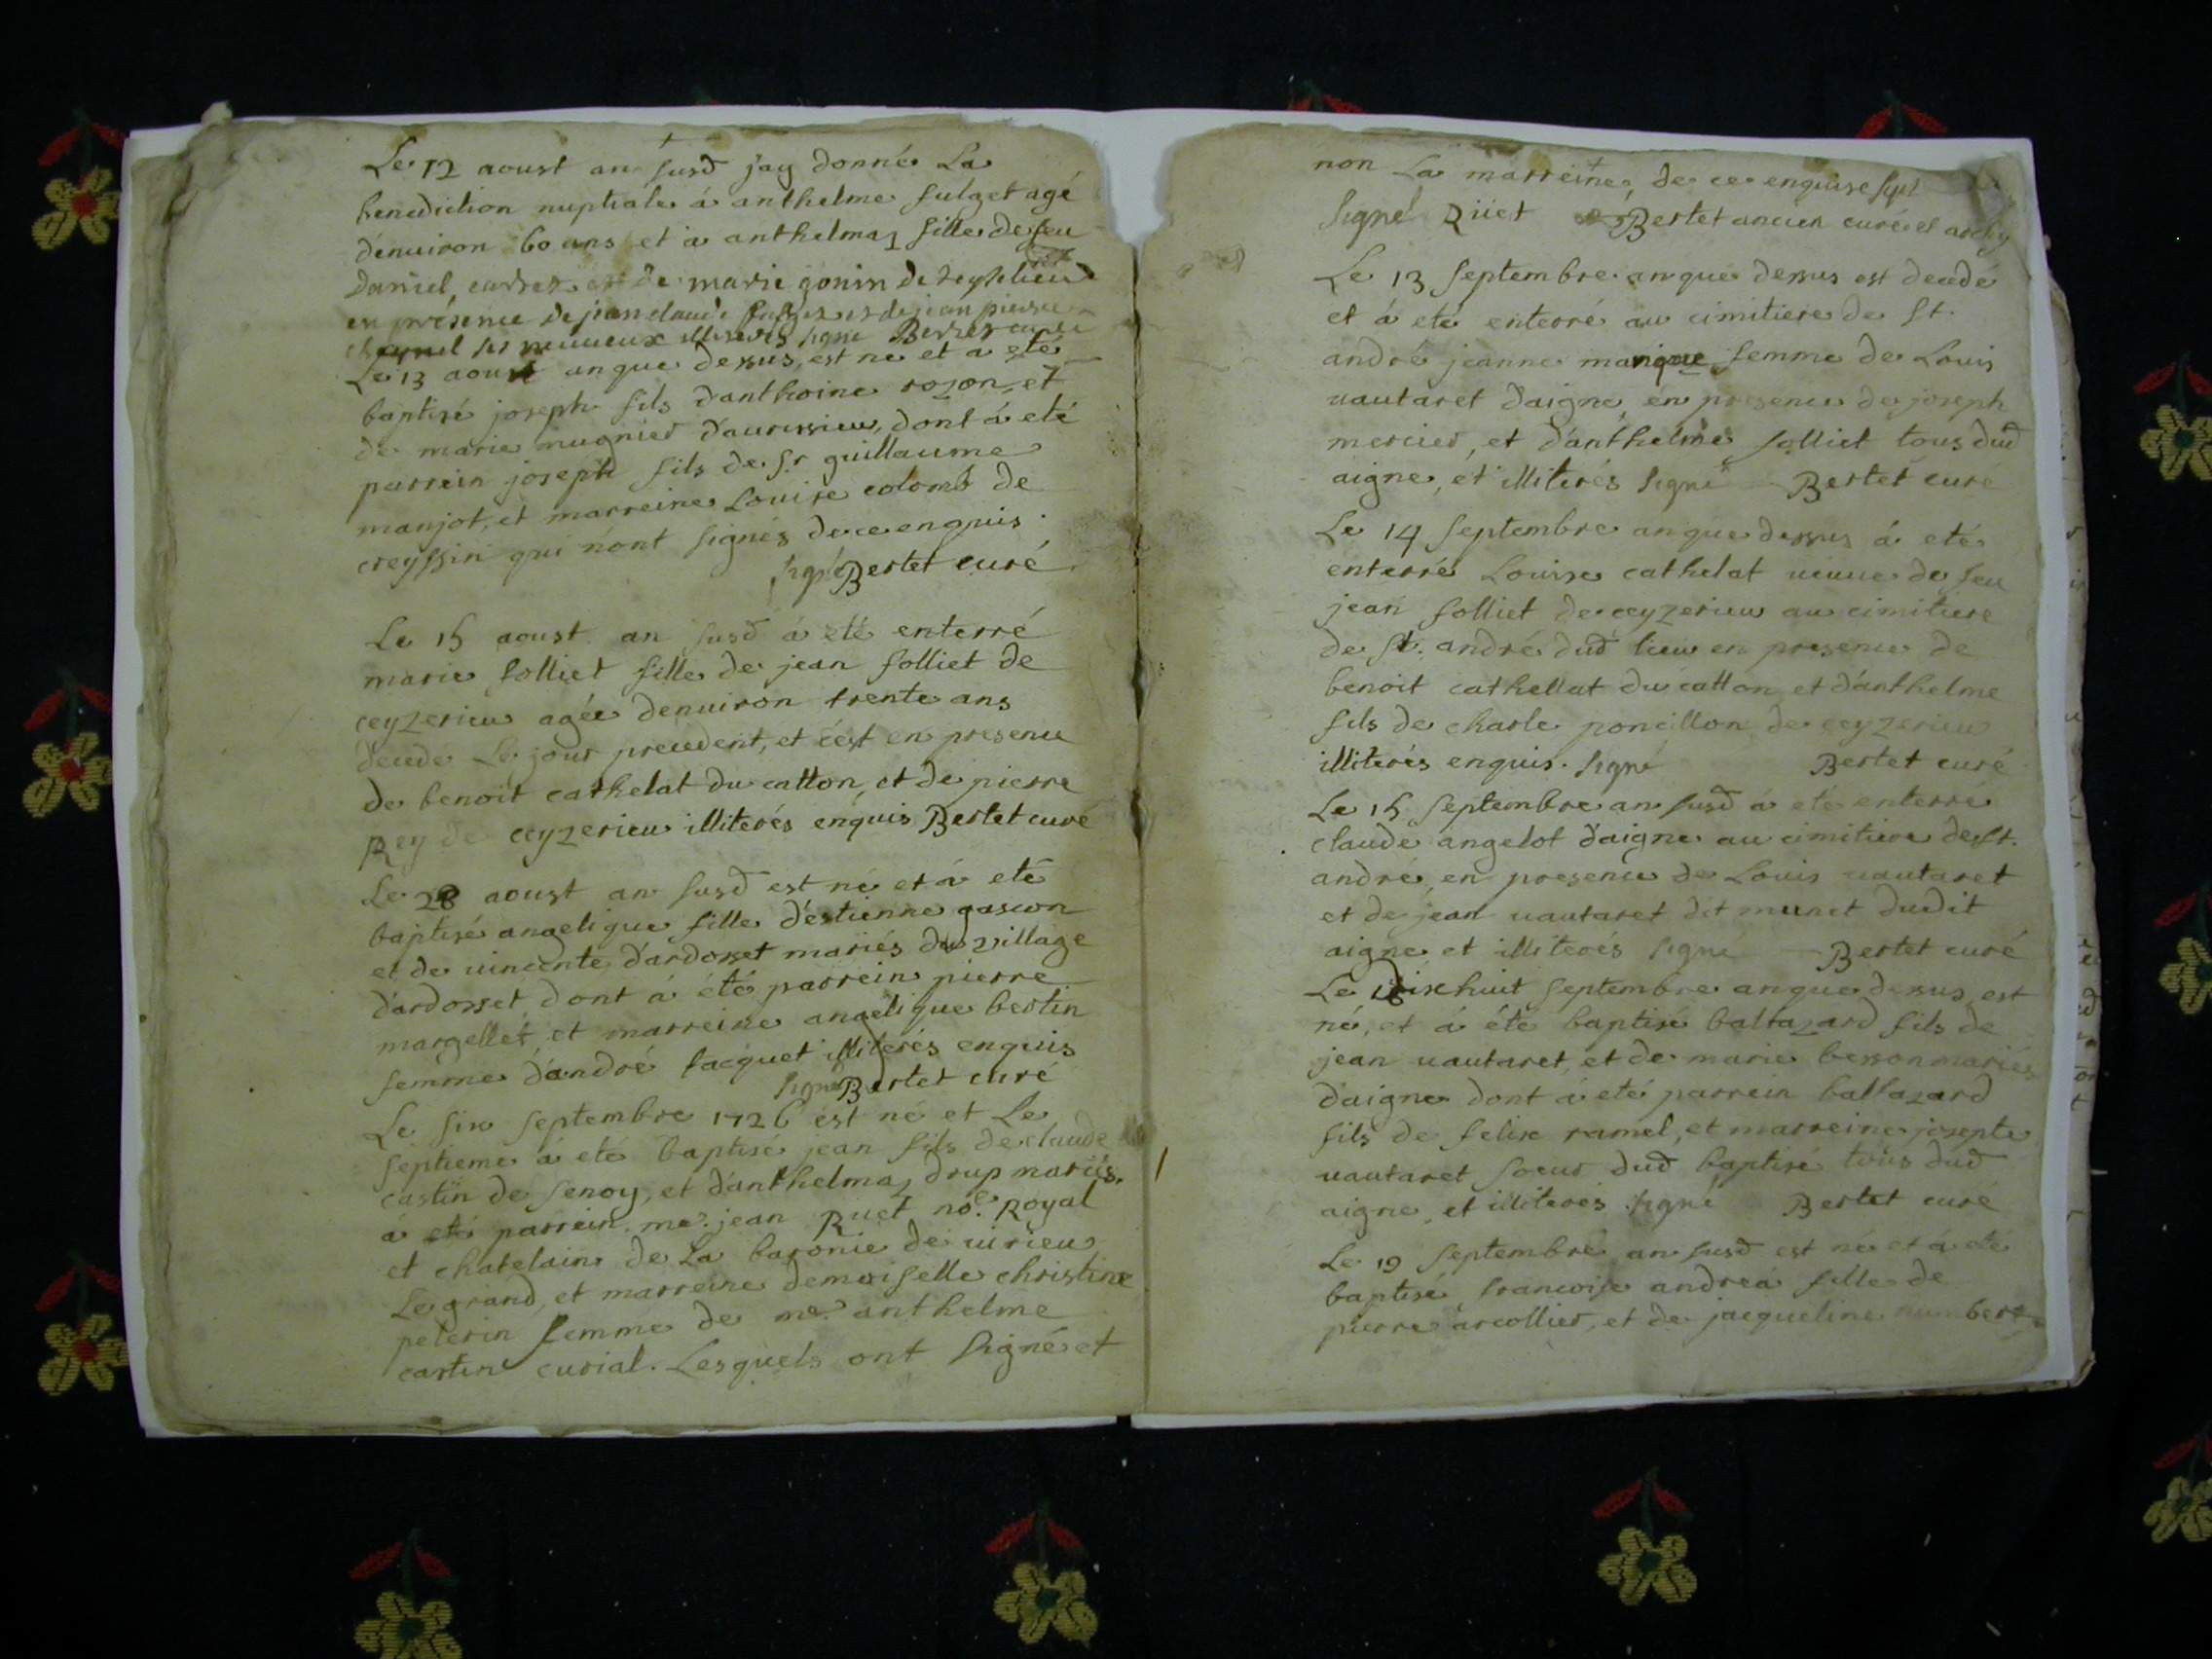 Le 12 aoust an susd jay donné La
benediction nuptiale á anthelme fulget agé
denuiron 60 ans et á anthelmaz fille de feu
Daniel carrez et de marie gonin de
en presence de jean claude et de jean pierre
ses illiterés signé Bertet curé
Le 13 aoust an que dessus, est né et a eté
baptisé joseph fils danthoine rozon, et
de marie mugnier d'aurissieu, dont á eté
parrein joseph fils de sr guillaume
manjot, et marreine Louise colomb de
creyssin qui nont signés de ce enquis.
signé Bertet curé
Le 15 aoust an susd á eté enterré
marie folliet fille de jean folliet de
ceyzerieu agée denuiron trente ans
decedé Le jour precedent, et c'est en presence
de benoit cathelat du catton, et de pierre
Rey de ceyzerieu illiterés enquis Bertet curé
Le 28 aoust an susd est né et á eté
baptisé angelique fille d'estienne gascon
et de uincente d'ardosset mariés du village
d'ardosset, dont á été parrein pierre
margellet, et marreine angelique bertin
femme d'andré jacquet illiterés enquis
signé Bertet curé
Le six septembre 1726 est né et Le
septieme á eté baptisé jean fils de claude
castin de senoy, et d'anthelmaz drup mariés.
á eté parrein me. jean Ruet nore. Royal
et chatelain de La baronie de uirieu
Le grand, et marreine demoiselle christine
peterin femme de me. anthelme
castin curial. Lesquels ont signé et
non La marreine, de ce enquise
signé Rüet Bertet ancien curé et
Le 13 septembre an que dessus est decedé
et á eté enterré au cimitiere de st.
andré jeanne manque femme de Louis
uautaret d'aigne, en presence de joseph
mercier, et d'anthelme folliet tous dud
aigne, et illiterés signé Bertet curé
Le 14 septembre an que dessus á eté
enterré Louise cathelat ueuue de feu
jean folliet de ceyzerieu au cimitiere
de st. andré dud lieu en presence de
benoit cathellat du catton et d'anthelme
fils de charle poncillon de ceyzerieu
illiterés enquis. signé Bertet curé
Le 15 septembre an susd á eté enterré
claude angelot d'aigne au cimitiere de st.
andré, en presence de Louis uautaret
et de jean uautaret dit munet dudit
aigne et illiterés signé Bertet curé
Le dixhuit septembre an que dessus est
né, et á été baptisé baltazard fils de
jean uautaret, et de marie besson mariés
d'aigne dont á eté parrein baltazard
fils de felix ramel, et marreine josepte
uautaret soeur dud baptisé tous dud
aigne, et illiterés signé Bertet curé
Le 19 septembre an susd est né et á eté
baptisé francoise andreá fille de
pierre arcollier, et de jacqueline humbert